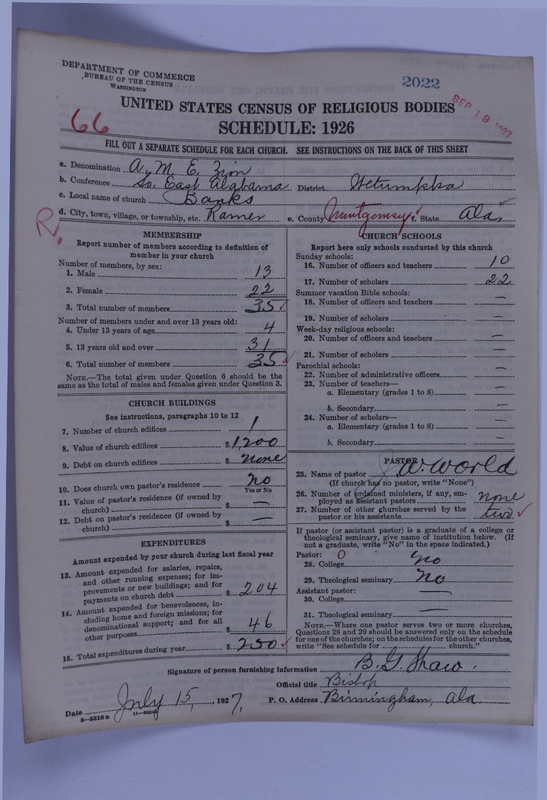 DEPARTMENT OF COMMERCE
BUREAU OF THE CENSUS
WASHINGTON
2022
SEP 19 1927
UNITED STATES CENSUS OF RELIGIOUS BODIES
66
SCHEDULE: 1926
FILL OUT A SEPARATE SCHEDULE FOR EACH CHURCH. SEE INSTRUCTIONS ON THE BACK OF THIS SHEET
a. Denomination A. M. E. Zion
b. Conference So. East Alabama District Wetumpka
c. Local name of church Banks
d. City, town, village, or township, etc. Ramer e. County Montgomery f. State Ala.
R.
MEMBERSHIP
Report number of members according to definition of member in your church
Number of members, by sex:
1. Male 13
2. Female 22
3. Total number of members 35 ✓
Number of members under and over 13 years old:
4. Under 13 years of age 4
5. 13 years old and over 31
6. Total number of members 35 ✓
NOTE.—The total given under Question 6 should be the
same as the total of males and females given under Question 3.
CHURCH BUILDINGS
See instructions, paragraphs 10 to 12
7. Number of church edifices 1
8. Value of church edifices $ 1200
9. Debt on church edifices $ none
10. Does church own pastor's residence no
Yes or No
11. Value of pastor's residence (if owned by
church) $ —
12. Debt on pastor's residence (if owned by
church) $ —
EXPENDITURES
Amount expended by your church during last fiscal year
13. Amount expended for salaries, repairs,
and other running expenses; for im-
provements or new buildings; and for
payments on church debt $ 204
14. Amount expended for benevolences, in-
cluding home and foreign missions; for
denominational support; and for all
other purposes $ 46
15. Total expenditures during year $ 250 ✓
CHURCH SCHOOLS
Report here only schools conducted by this church
Sunday schools:
16. Number of officers and teachers 10
17. Number of scholars 22
Summer vacation Bible schools:
18. Number of officers and teachers —
19. Number of scholars —
Week-day religious schools:
20. Number of officers and teachers —
21. Number of scholars —
Parochial schools:
22. Number of administrative officers —
23. Number of teachers—
a. Elementary (grades 1 to 8) —
b. Secondary —
24. Number of scholars—
a. Elementary (grades 1 to 8) —
b. Secondary —
PASTOR
25. Name of pastor W World
(If church has no pastor, write "None")
26. Number of ordained ministers, if any, em-
ployed as assistant pastors none
27. Number of other churches served by the
pastor or his assistants two ✓
If pastor (or assistant pastor) is a graduate of a college or
theological seminary, give name of institution below. (If
not a graduate, write "No" in the space indicated.)
Pastor: 0
28. College no
29. Theological seminary No
Assistant pastor:
30. College —
31. Theological seminary —
NOTE.—Where one pastor serves two or more churches,
Questions 28 and 29 should be answered only on the schedule
for one of the churches; on the schedules for the other churches,
write "See schedule for ........ church."
Signature of person furnishing information B. G. Shaw.
Official title Bishop
Date July 15, 1927. P. O. Address Birmingham, Ala.